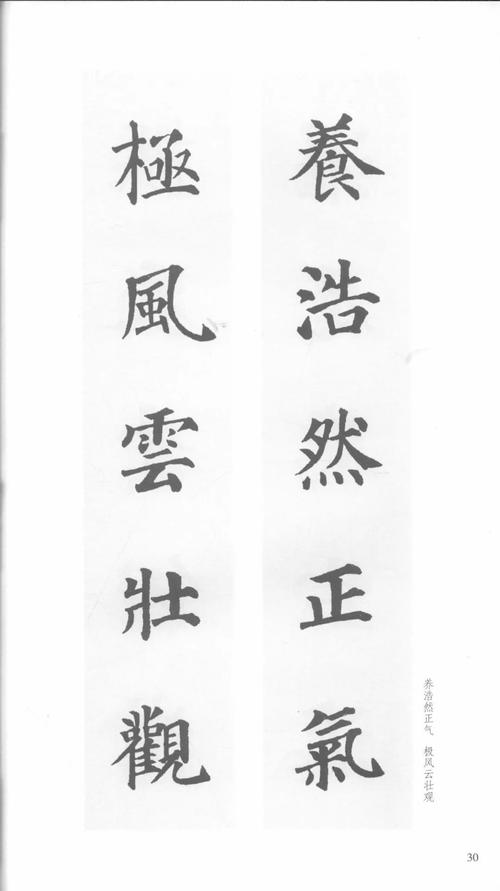 養浩然正氣
極風雲壯觀
养浩然正气 极风云壮观
30